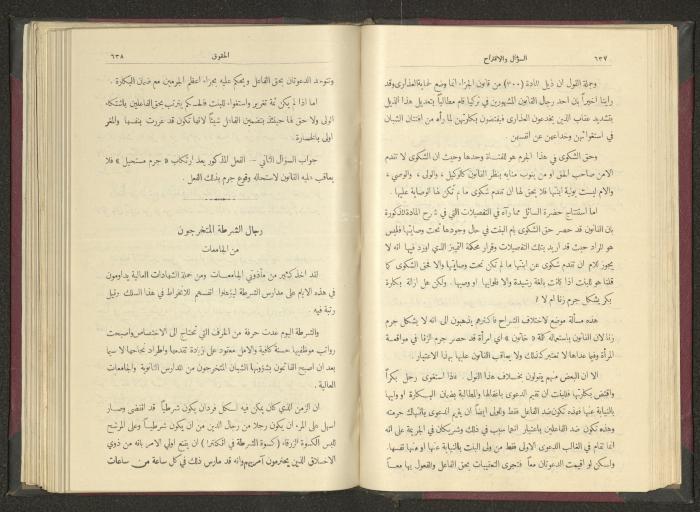 السؤال والاقتراح ٦٣٧
وجملة القول ان ذيل المادة (٣٠٠) من قانون الجزاء انما وضع لحماية العذارى وقد
رأينا اخيراً بان احد رجال القانون المشهورين في تركيا قام مطالباً بتعديل هذا الذيل
بتشديد عقاب الذين يخدعون العذارى فيفتضون بكارتهن لما رآه من افتتان الشبان
في استغوائهن وخداعهن عن انفسهن .
وحق الشكوى في هذا الجرم هو للفتاة وحدها وحيث ان الشكوى لا تقدم
الا من صاحب الحق او من ينوب منابه بنظر القانون كالوكيل ، والولى ، والوصي ،
والام ليست بولية ابنتها فلا يحق لها ان تقدم شكوى ما لم تكن لها الوصاية عليها .
اما استنتاج حضرة السائل مما رآه في التفصيلات التي في شرح المادة المذكورة
بان القانون قد حصر حق الشكوى بام البنت في حال وجودها تحت وصايتها فليس
هو المراد حيث قد اريد بتلك التفصيلات وقرار محكمة التمييز الذي اورد فيها انه لا
يجوز للام ان تقدم شكوى عن ابنتها ما لم تكن تحت وصايتها والا فحق الشكوى كما
قلنا هو للبنت اذا كانت بالغة رشيدة والا فلوليها او وصيها . ولكن هل ازالة بكارة
بكر يشكل جرم زنا ام لا ؟
هذه مسألة موضع لاختلاف الشراح فأكثرهم يذهبون الى انه لا يشكل جرم
زنا لان القانون باستعماله كلمة « خاتون » اي امرأة قد حصر جرم الزنا في مواقعة
المرأة وفيما عداها لا تعتبر كذلك ولا يعاقب القانون عليها بهذا الاعتبار .
الا ان البعض منهم يقولون بخلاف هذا القول . فاذا استغوى رجل بكراً
وافتض بكارتها فللبنت ان تقيم الدعوى باغفالها والمطالبة بضمان البكارة او وليها
بالنيابة عنها فهذه تكون ضد الفاعل فقط وللولى ايضاً ان يقيم الدعوى بانتهاك حرمته
وهذه تكون ضد الفاعلين باعتبار انها سبب في ذلك وشريكان في الجريمة على انه
انما تقام في الغالب الدعوى الاولى فقط من ولى البنت بالنيابة عنها او عنها نفسها.
ولكن لو اقيمت الدعوتان معاً فتجرى التعقيبات بحق الفاعل والمفعول بها معاً
٦٣٨ الحقوق
وتتوحد الدعوتان بحق الفاعل ويحكم عليه بجزاء اعظم الجرمين مع ضمان البكارة .
اما اذا لم يكن ثمة تغرير واستغواء للبنت فالحكم يترتب بحق الفاعلين باشتكاء
الولى ولا حق لها حينئذ بتضمين الفاعل شيئاً لانها تكون قد غررت بنفسها والمغر
اولى بالخسارة .
جواب السؤال الثاني - الفعل المذكور يعد ارتكاب « جرم مستحيل » فلا
يعاقب عليه القانون لاستحالة وقوع جرم بذلك الفعل .
رجال الشرطة المتخرجون
من الجامعات
لقد اخذ كثير من مأذوني الجامعات ومن حملة الشهادات العالية يداومون
في هذه الايام على مدارس الشرطة ليؤهلوا انفسهم للانخراط في هذا السلك ونيل
رتبة فيه .
والشرطة اليوم عدت حرفة من الحرف التي تحتاج الى الاختصاص واصبحت
رواتب موظفيها حسنة كافية والامل معقود على زيادة تقدمها واطراد نجاحها لا سيما
بعد ان اصبح القائمون بشؤونها الشبان المتخرجون من المدارس الثانوية والجامعات
العالية .
ان الزمن الذي كان يمكن فيه لكل فرد ان يكون شرطياً قد انقضى وصار
اسهل على المرء ان يكون رجلا من رجال الدين من ان يكون شرطياً وعلى المرشح
للبس الكسوة الزرقاء (كسوة الشرطة في انكلترا) ان يقنع اولي الامر بانه من ذوي
الاخلاق الذين يحترمون آمريهم وانه قد مارس ذلك في كل ساعة من ساعات